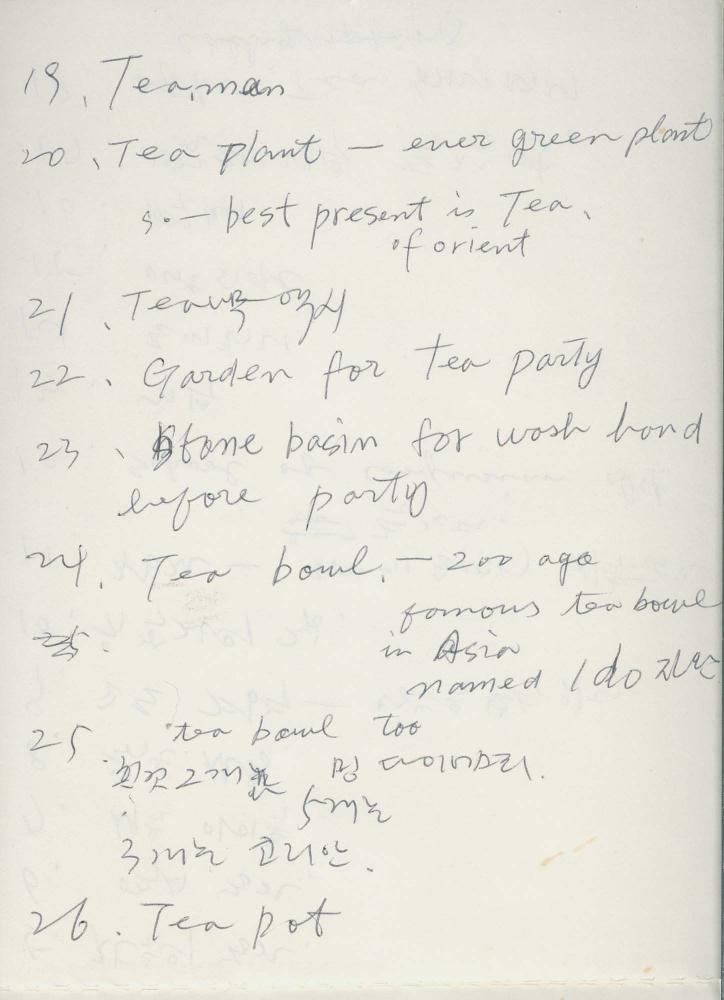 19. Tea man
20. Tea plant — ever green plant
so — best present is Tea.
of orient
21. Tea
22. Garden for tea party
23. Stone basin for wash hand
before party
24. Tea bowl. — 200 ago
famous tea bowl
in Asia
named Ido
25. tea bowl too
흰것 2개 밍 다이너스티.
5개는
3개는 코리안.
26. Tea pot